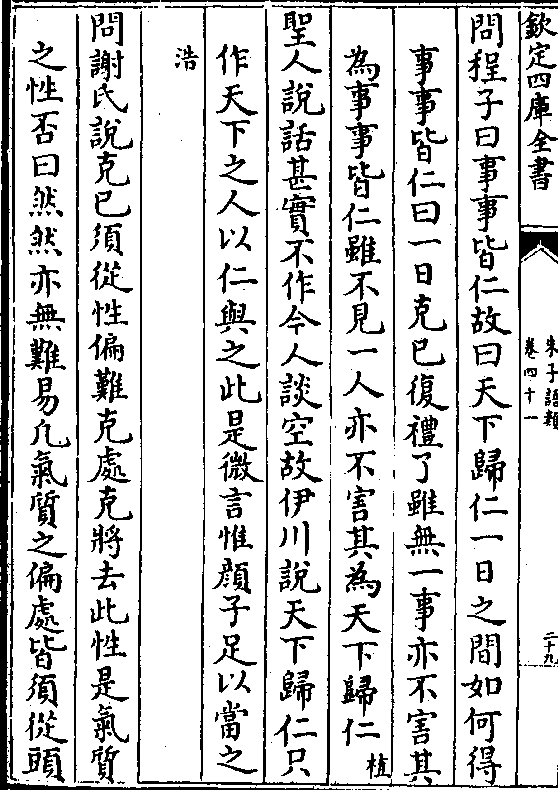 欽定四庫全書
朱子語類
卷四十一
二十九
問程子曰事事皆仁故曰天下歸仁一日之間如何得
事事皆仁曰一日克已復禮了雖無一事亦不害其
為事事皆仁雖不見一人亦不害其為天下歸仁植
聖人說話甚實不作今人談空故伊川說天下歸仁只
作天下之人以仁與之此是微言惟顔子足以當之
浩
問謝氏說克已須從性偏難克處克將去此性是氣質
之性否曰然然亦無難易凡氣質之偏處皆須從頭